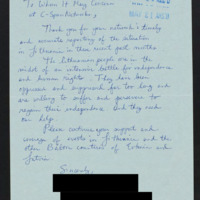 To Whom It May Concern
at C-Span Network,
Thank you for your network's timely
and accurate reporting of the situation
in Lithuania in these recent past months.
The Lithuanian people are in the
midst of an intensive battle for independence
and human rights. They have been
oppressed and suppressed for too long and
are willing to suffer and persevere to
regain their independence. But they need
our help.
Please continue your support and
coverage of events in Lithuania and the
other Baltic countries of Estonia and
Latvia.
Sincerely,